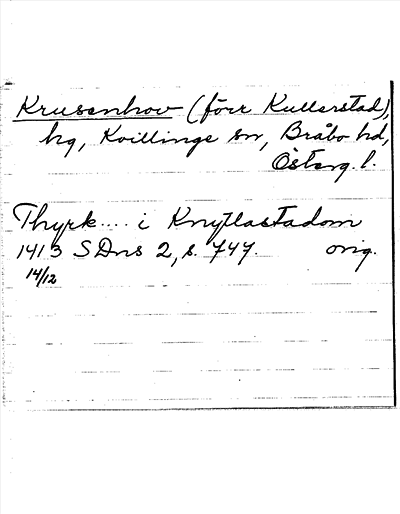 Krusenhov (förr Kullerstad),
hg, Kvillinge sn, Bråbo hd,
Österg. l.
Thyrk.... i Knytlastadom
1413 SDns 2, s. 747. orig.
14/12